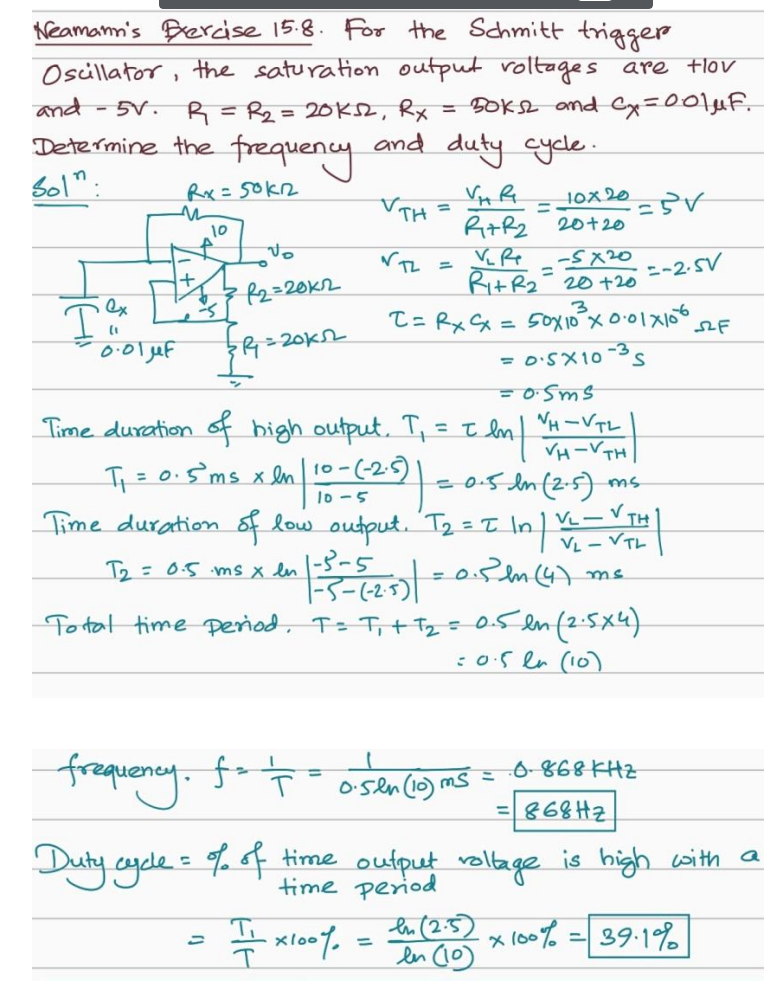 Neamann's Exercise 15.8. For the Schmitt trigger
Oscillator, the saturation output voltages are +10V
and -5V. R₁ = R₂ = 20KΩ, Rx = 50KΩ and Cx = 0.01μF.
Determine the frequency and duty cycle.
Solⁿ:
Rx = 50KΩ
10
Vo
-
+
-5
R₂=20KΩ
Cx
"
0.01μF
R₁=20KΩ
V_TH = V_H R₁ / (R₁+R₂) = 10×20 / (20+20) = 5V
V_TL = V_L R₁ / (R₁+R₂) = -5×20 / (20+20) = -2.5V
τ = Rx Cx = 50×10³ × 0.01×10⁻⁶ ΩF
= 0.5×10⁻³ s
= 0.5ms
Time duration of high output. T₁ = τ ln |(V_H-V_TL) / (V_H-V_TH)|
T₁ = 0.5ms × ln |(10-(-2.5)) / (10-5)| = 0.5 ln(2.5) ms
Time duration of low output. T₂ = τ ln |(V_L-V_TH) / (V_L-V_TL)|
T₂ = 0.5 ms × ln |(-5-5) / (-5-(-2.5))| = 0.5 ln(4) ms
Total time period. T = T₁+T₂ = 0.5 ln(2.5×4)
= 0.5 ln (10)
frequency. f = 1/T = 1 / (0.5 ln(10) ms) = 0.868 KHz
= 868Hz
Duty cycle = % of time output voltage is high with a
time period
= T₁/T ×100% = ln(2.5) / ln(10) × 100% = 39.1%